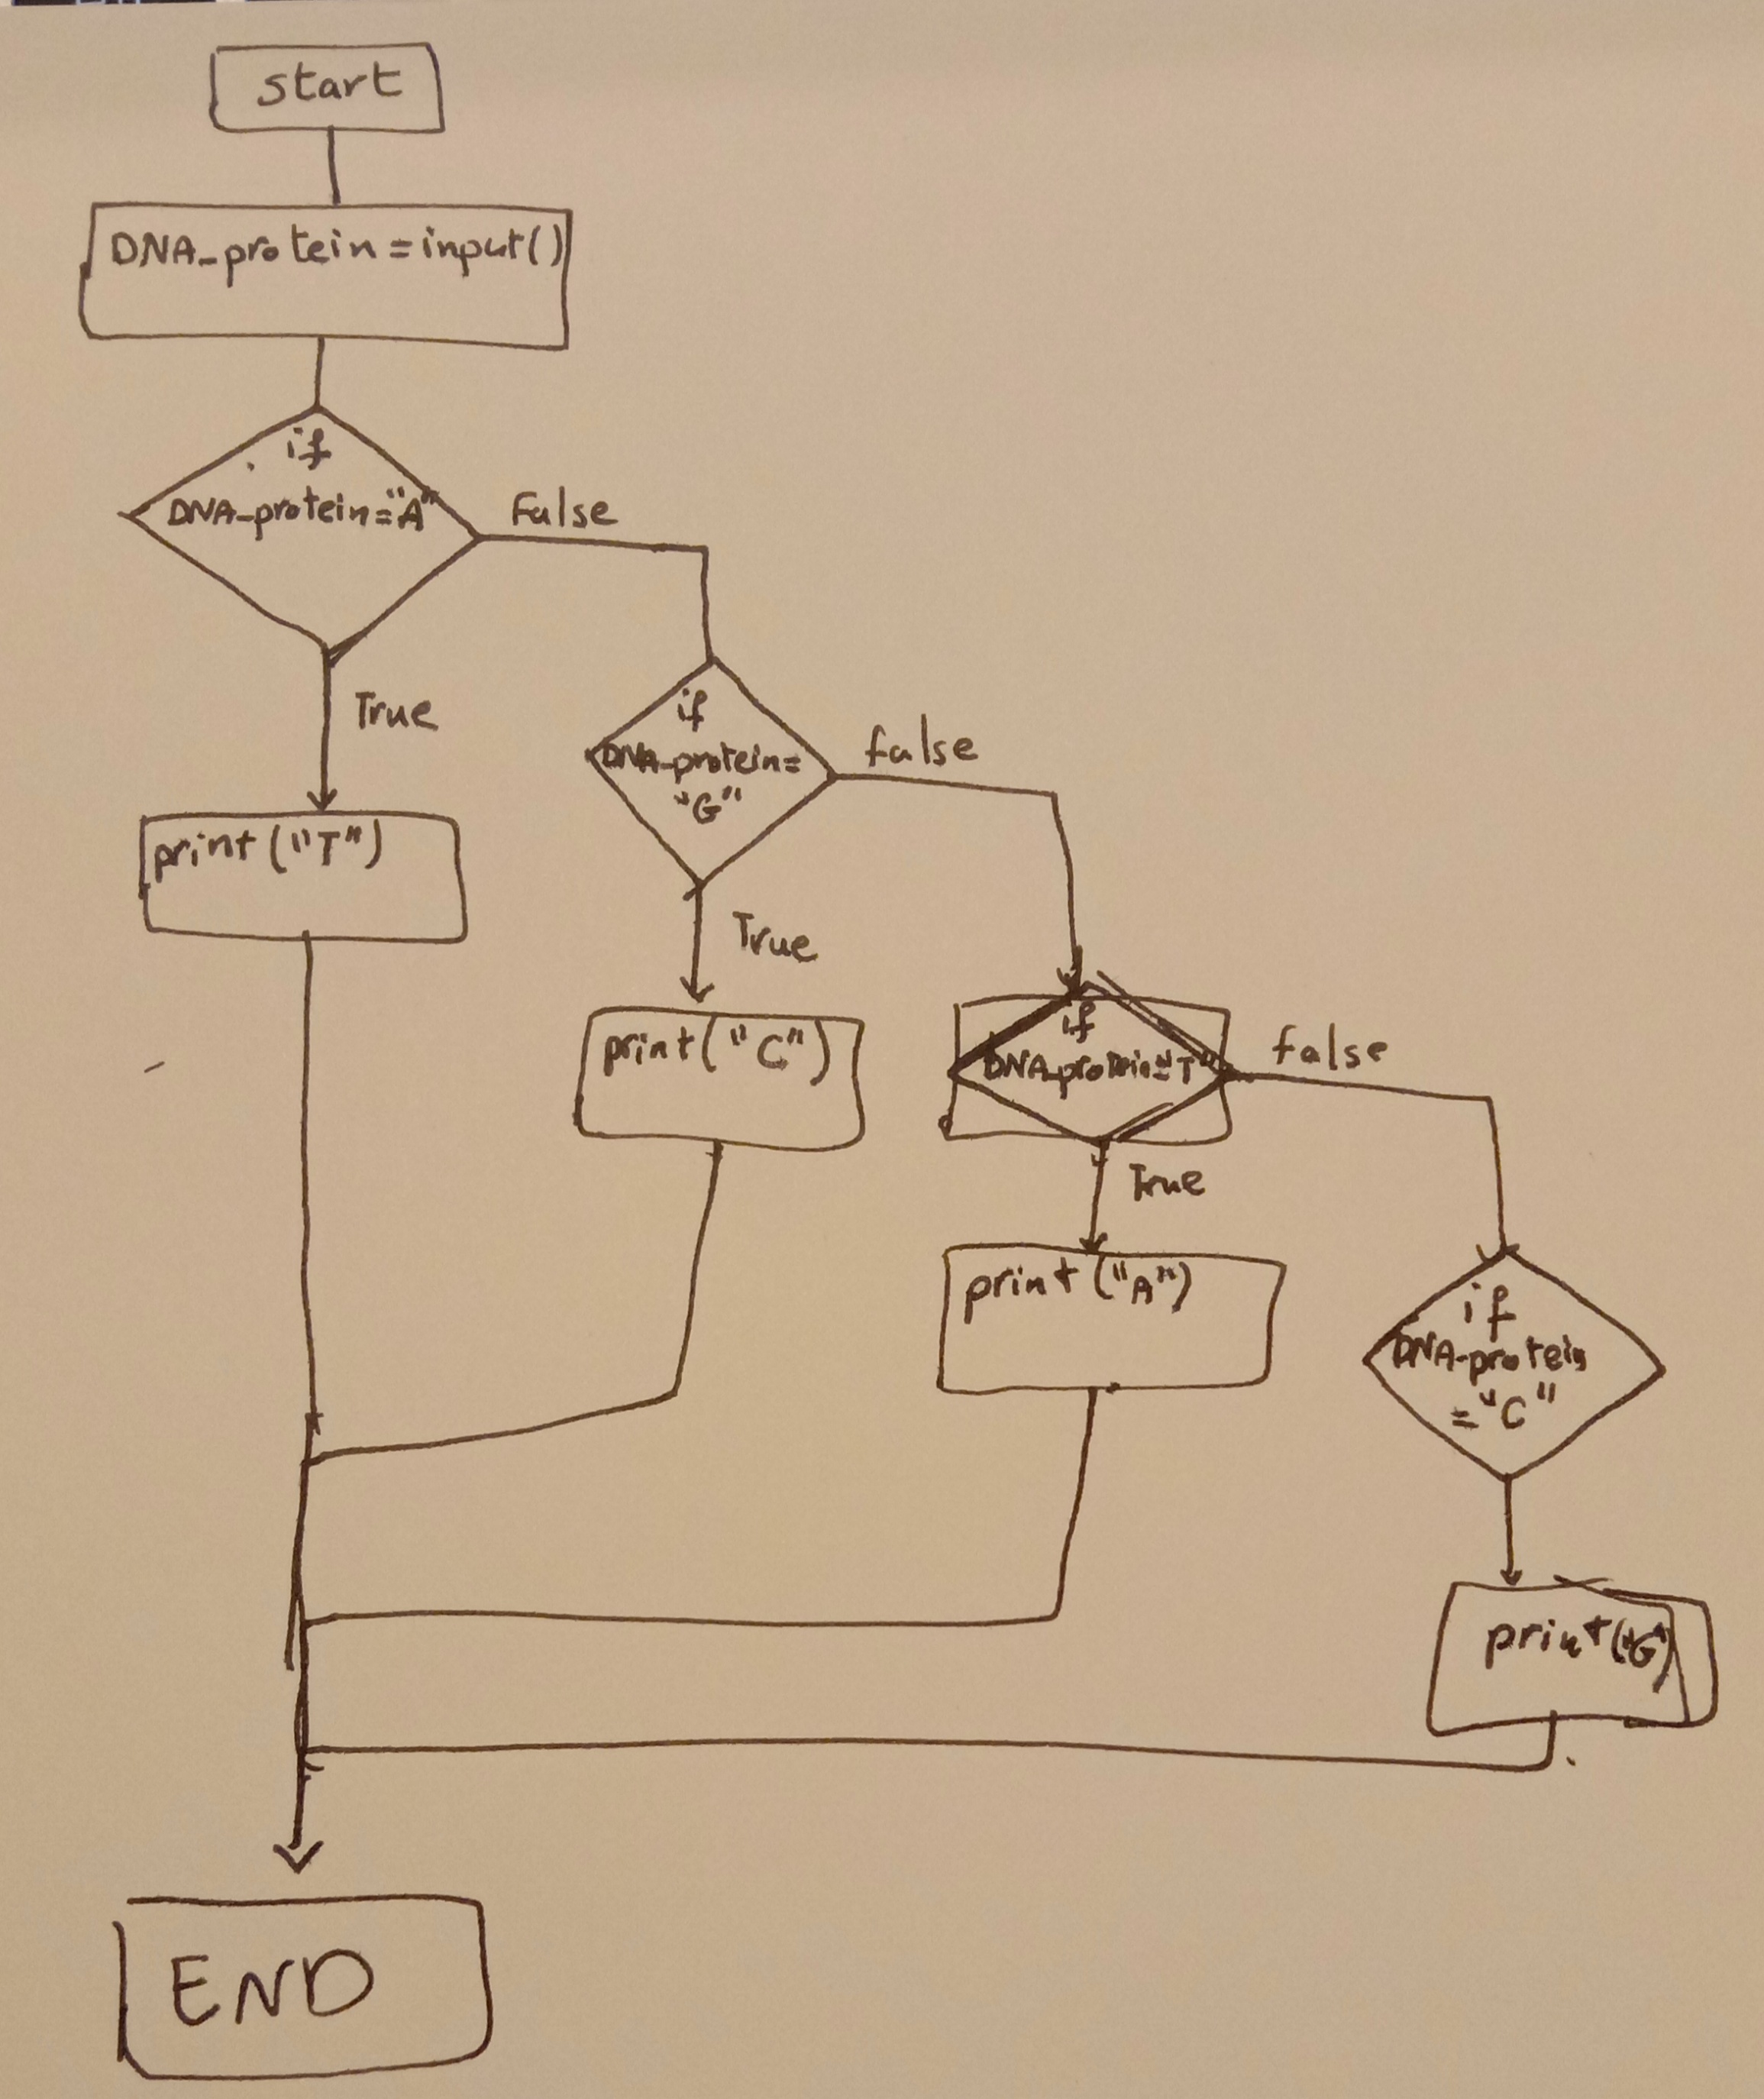 start
DNA_protein=input()
if
DNA_protein="A"
False
True
print("T")
if
DNA_protein=
"G"
false
True
print("C")
if
DNA_protein="T"
false
True
print("A")
if
DNA-protein
="C"
print("G")
END